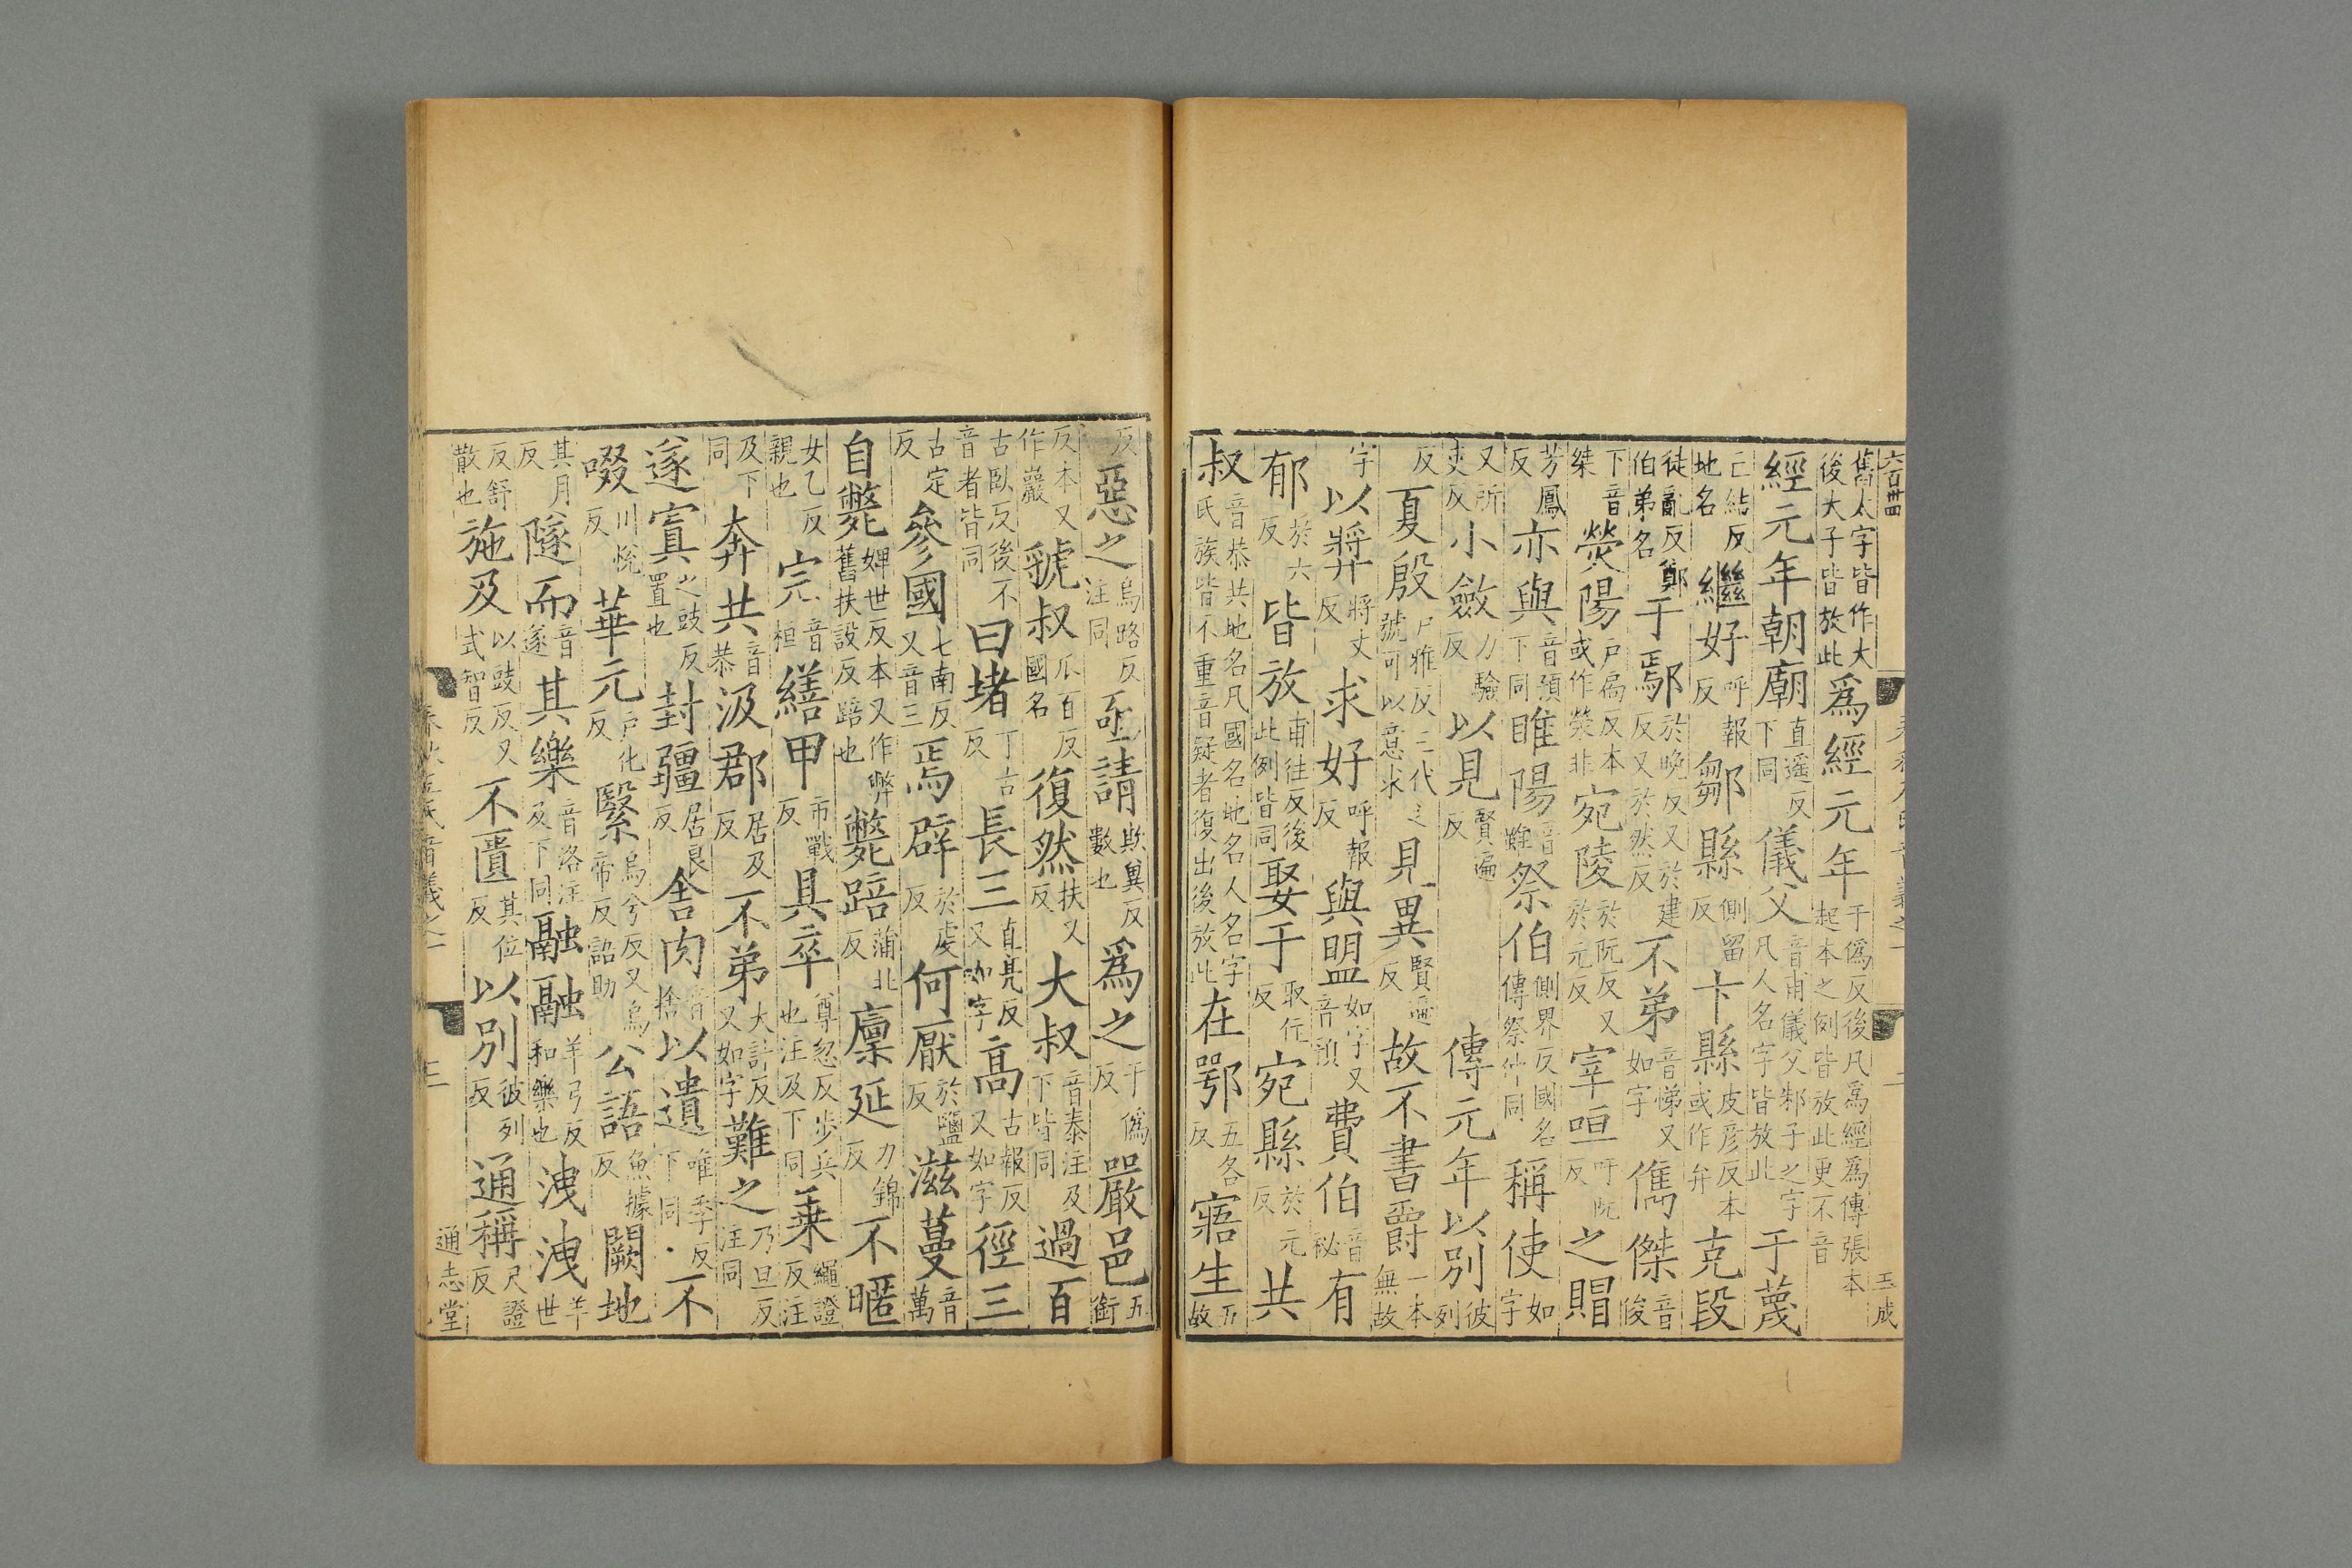 六百卅四 春秋左氏音義之一 二 玉成
舊太字皆作大後大子皆放此爲經元年于僞反後凡爲經爲傳張本起本之例皆放此更不音
經元年朝廟直遥反下同儀父音甫儀父邾子之字凡人名字皆放此于蔑
亡結反地名繼好呼報反鄒縣側留反卞縣皮彦反本或作弁克段
徒亂反鄭伯弟名于鄢於晚反又於建反又於然反不弟音悌又如字儁傑音俊
下音桀熒陽戸扃反本或作滎非宛陵於阮反又於元反宰咺吁阮反之賵
芳鳳反亦與音預下同睢陽音雖祭伯側界反國名傳祭仲同稱使如字
又所吏反小斂力驗反以見賢遍反傳元年以別彼列
反夏殷戸雅反三代之號可以意求見異賢遍反故不書爵一本無故
字以奬將丈反求好呼報反與盟如字又音預費伯音祕有
郁於六反皆放甫往反後此例皆同娶于取住反宛縣於元反共
叔音恭共地名凡國名地名人名字氏族皆不重音疑者復出後放此在鄂五各反寤生五故
反惡之烏路反注同亟請欺異反數也爲之于僞反嚴邑五銜
反本又作巖虢叔瓜百反國名復然扶又反大叔音泰注及下皆同過百
古臥反後不音者皆同曰堵丁古反長三直亮反又如字高古報反又如字徑三
古定反參國七南反又音三焉辟於虔反何厭於鹽反滋蔓音萬
自斃婢世反本又作弊舊扶設反踣也斃踣蒲北反廩延力錦反不暱
女乙反親也完音桓繕甲市戰反具卒尊忽反步兵也注及下同乗繩證反注
及下同奔共音恭汲郡居及反不弟大計反又如字難之乃旦反注同
遂寘之豉反置也封疆居良反舍肉音捨以遺唯季反下同不
啜川悅反華元戸化反繄烏兮反又烏帝反語助公語魚據反闕地
其月反隧而音遂其樂音洛注及下同融融羊弓反和樂也洩洩羊世
反舒散也施及以豉反又式智反不匱其位反以別彼列反通稱尺證反
春秋左氏音義之一 三 通志堂